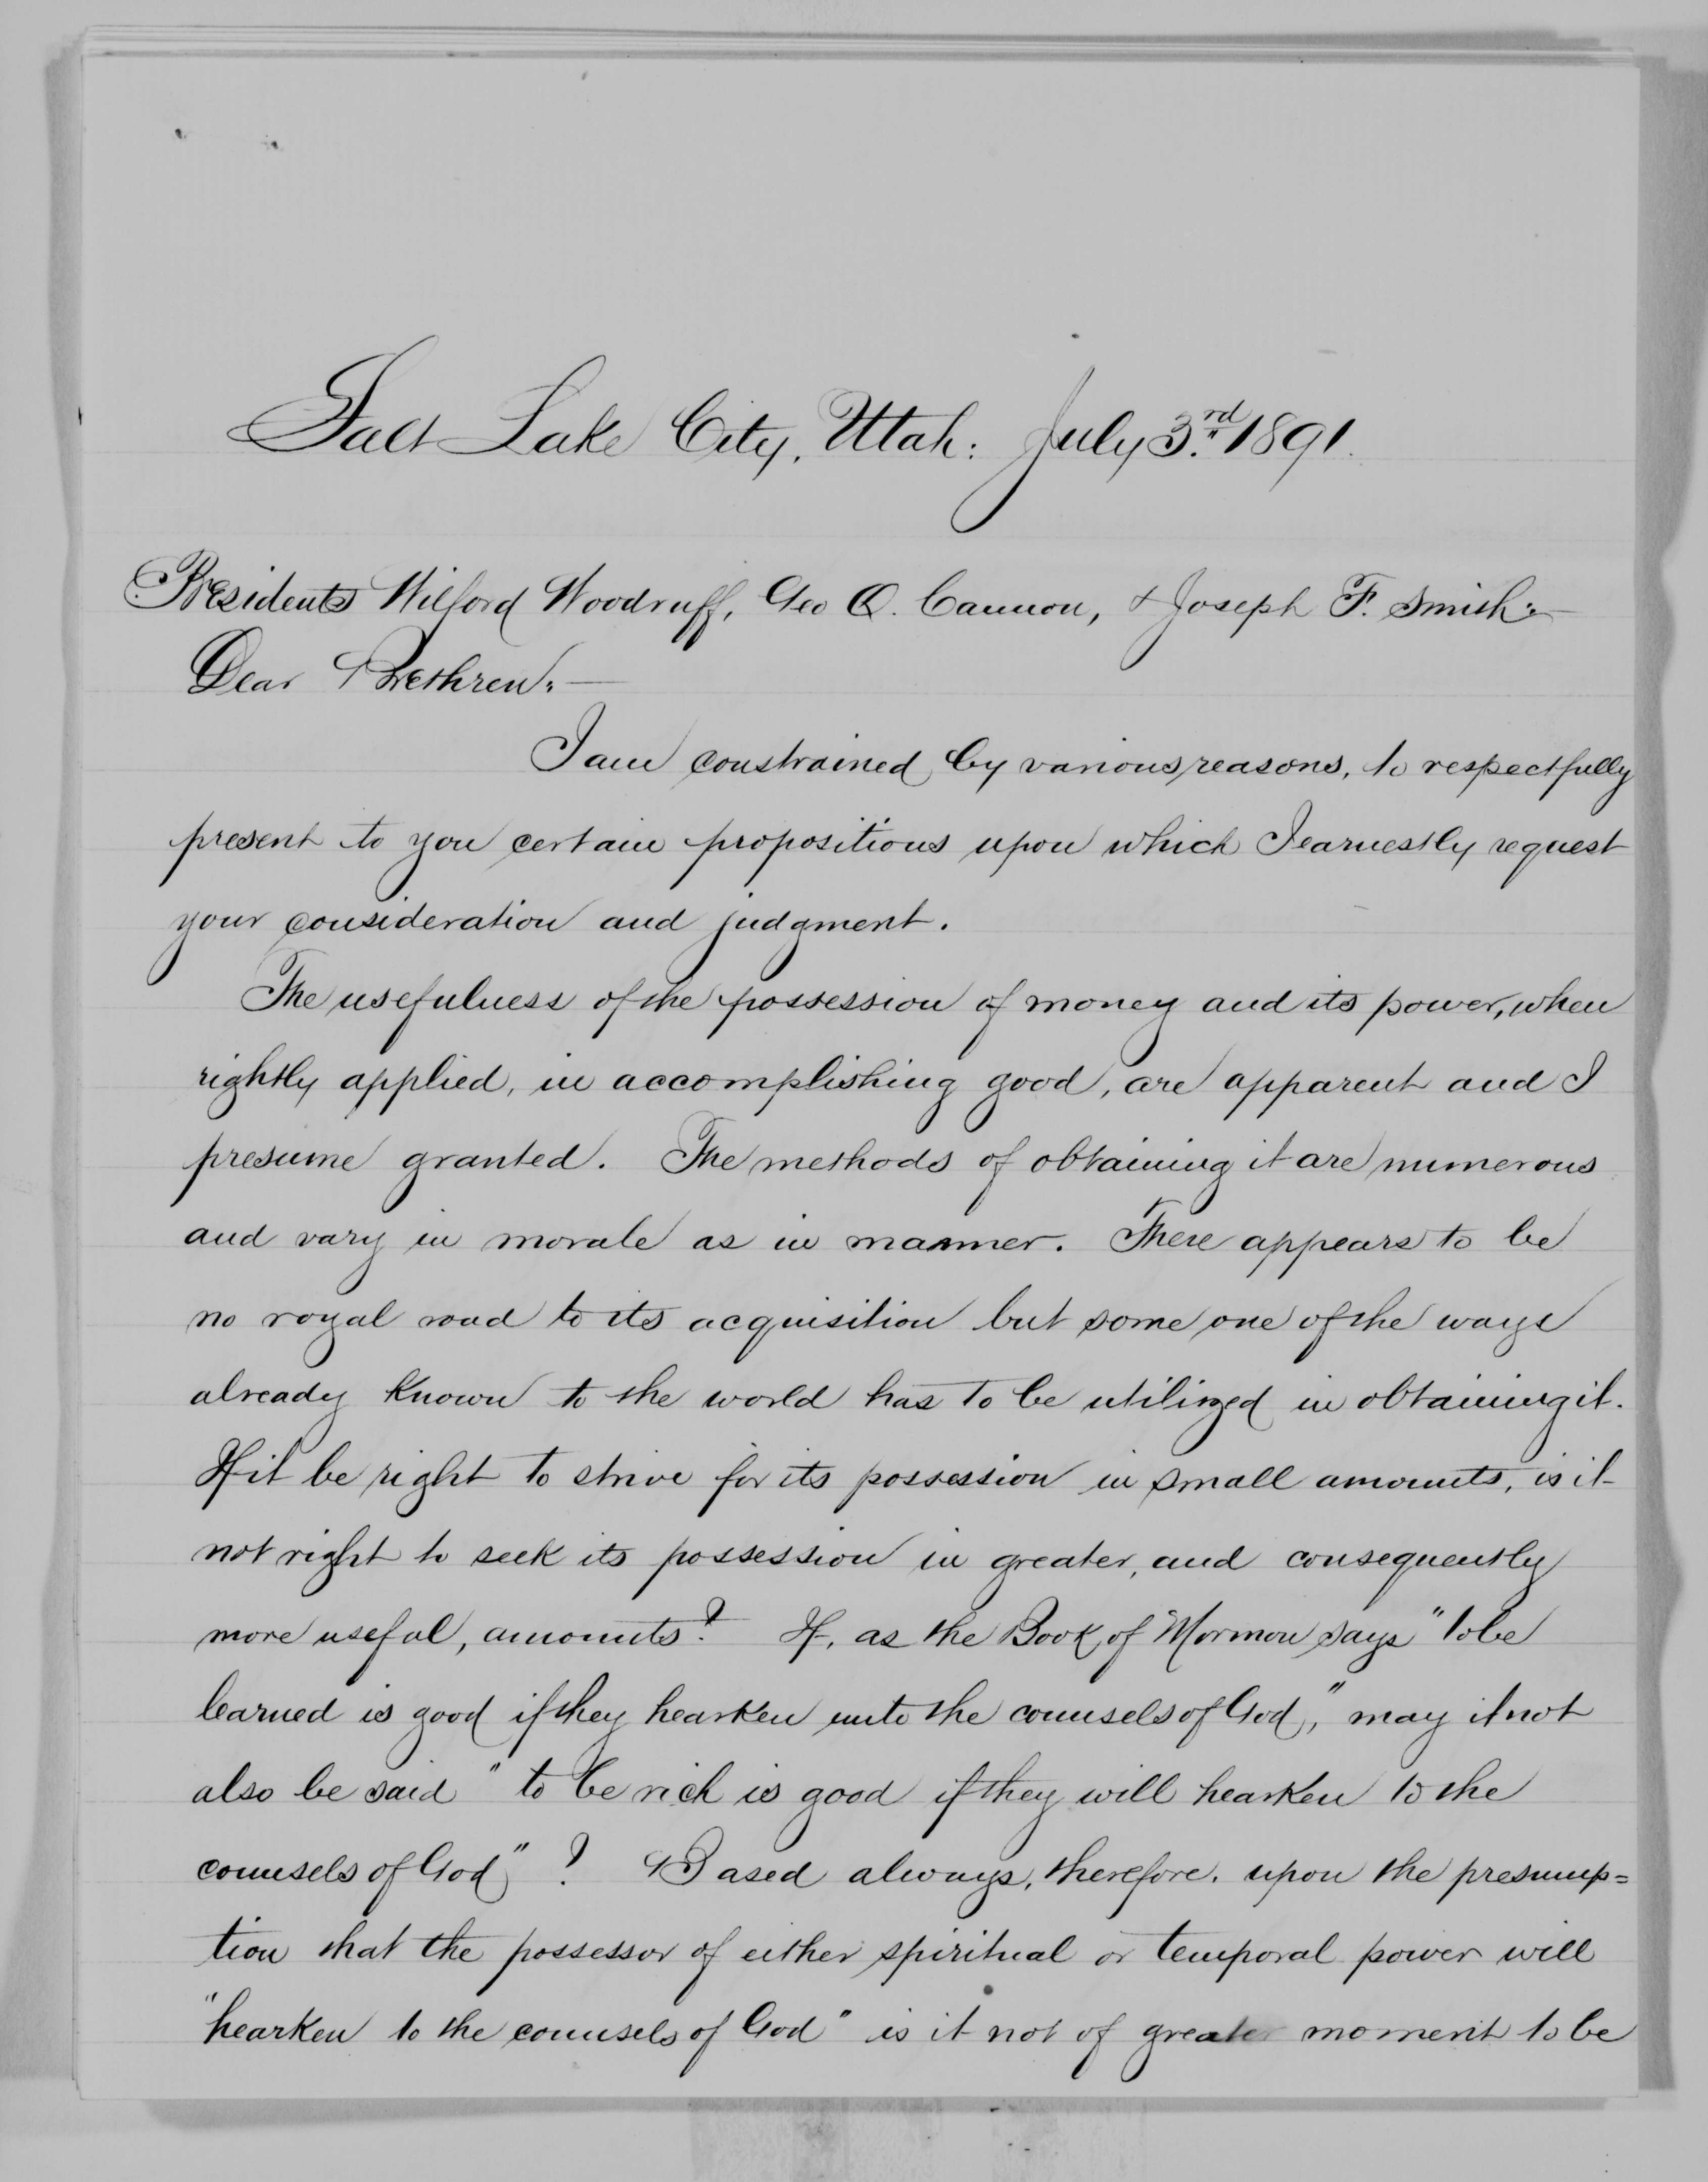 Salt Lake City, Utah: July 3.rd 1891.
Presidents Wilford Woodruff, Geo Q. Cannon, & Joseph F. Smith:—
Dear Brethren:—
I am constrained by various reasons, to respectfully
present to you certain propositions upon which I earnestly request
your consideration and judgment.
The usefulness of the possession of money and its power, when
rightly applied, in accomplishing good, are apparent and I
presume granted. The methods of obtaining it are numerous
and vary in morale as in manner. There appears to be
no royal road to its acquisition but some one of the ways
already known to the world has to be utilized in obtaining it.
If it be right to strive for its possession in small amounts, is it
not right to seek its possession in greater, and consequently
more useful, amounts? If, as the Book of Mormon says "to be
learned is good if they hearken unto the counsels of God," may it not
also be said "to be rich is good if they will hearken to the
counsels of God"? Based always, therefore, upon the presump=
tion that the possessor of either spiritual or temporal power will
"hearken to the counsels of God" is it not of greater moment to be